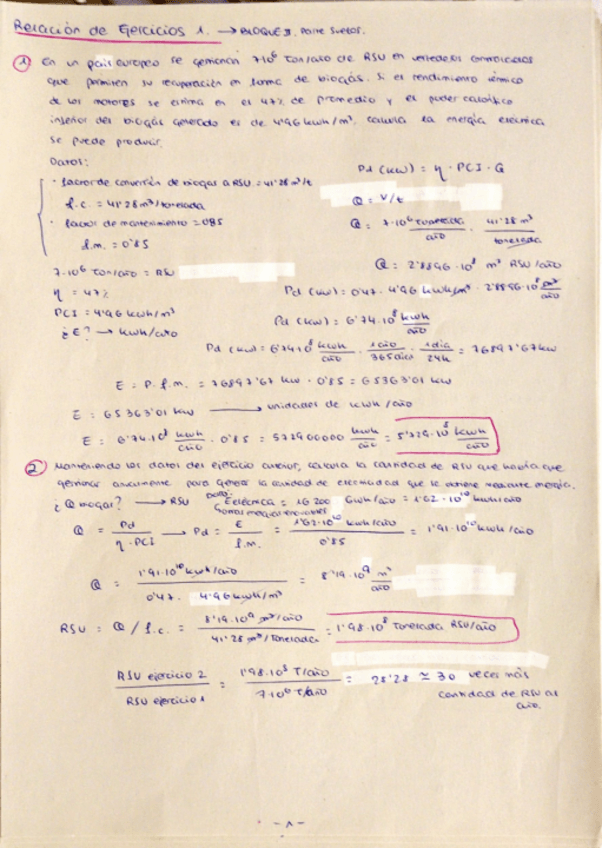 Relación de Ejercicios 1. → BLOQUE II. Parte Suelos.
① En un país europeo se gestionan 7·10⁶ Ton/año de RSU en vertederos controlados
que permiten su recuperación en forma de biogás. Si el rendimiento térmico
de los motores se estima en el 47% de promedio y el poder calorífico
inferior del biogás generado es de 4'96 kwh/m³, calcula la energía eléctrica
se puede producir.
Datos:
· factor de conversión de biogas a RSU = 41'28 m³/t
f.c. = 41'28 m³/tonelada
· factor de mantenimiento = 0'85
f.m. = 0'85
7·10⁶ Ton/año = RSU
η = 47%
PCI = 4'96 kwh/m³
¿E? → kwh/año
Pd (kw) = η · PCI · Q
Q = V/t
Q = 7·10⁶ tonelada/año · 41'28 m³/tonelada
Q = 2'8896·10⁸ m³ RSU/año
Pd (kw) = 0'47 · 4'96 kwh/m³ · 2'8896·10⁸ m³/año
Pd (kw) = 6'74·10⁸ kwh/año
Pd (kw) = 6'74·10⁸ kwh/año · 1año/365días · 1día/24h = 76897'67 kw
E = P. f.m. = 76897'67 kw · 0'85 = 65363'01 kw
E = 65363'01 kw → unidades de kwh/año
E = 6'74·10⁸ kwh/año · 0'85 = 572900000 kwh/año = 5'729·10⁸ kwh/año
② Manteniendo los datos del ejercicio anterior, calcula la cantidad de RSU que habría que
gestionar anualmente para generar la cantidad de electricidad que se obtiene mediante energía.
¿Q biogas? → RSU
Dato: Eeléctrica = 16200 Gwh/año = 1'62·10¹⁰ kwh/año
Q = Pd/η·PCI → Pd = E/f.m. = 1'62·10¹⁰ kwh/año/0'85 = 1'91·10¹⁰ kwh/año
Q = 1'91·10¹⁰ kwh/año/0'47 · 4'96 kwh/m³ = 8'19·10⁹ m³/año
RSU = Q / f.c. = 8'19·10⁹ m³/año/41'28 m³/Tonelada = 1'98·10⁸ Tonelada RSU/año
RSU ejercicio 2/RSU ejercicio 1 = 1'98·10⁸ T/año/7·10⁶ T/año = 28'28 ≃ 30 veces más
cantidad de RSU al
año.
-1-